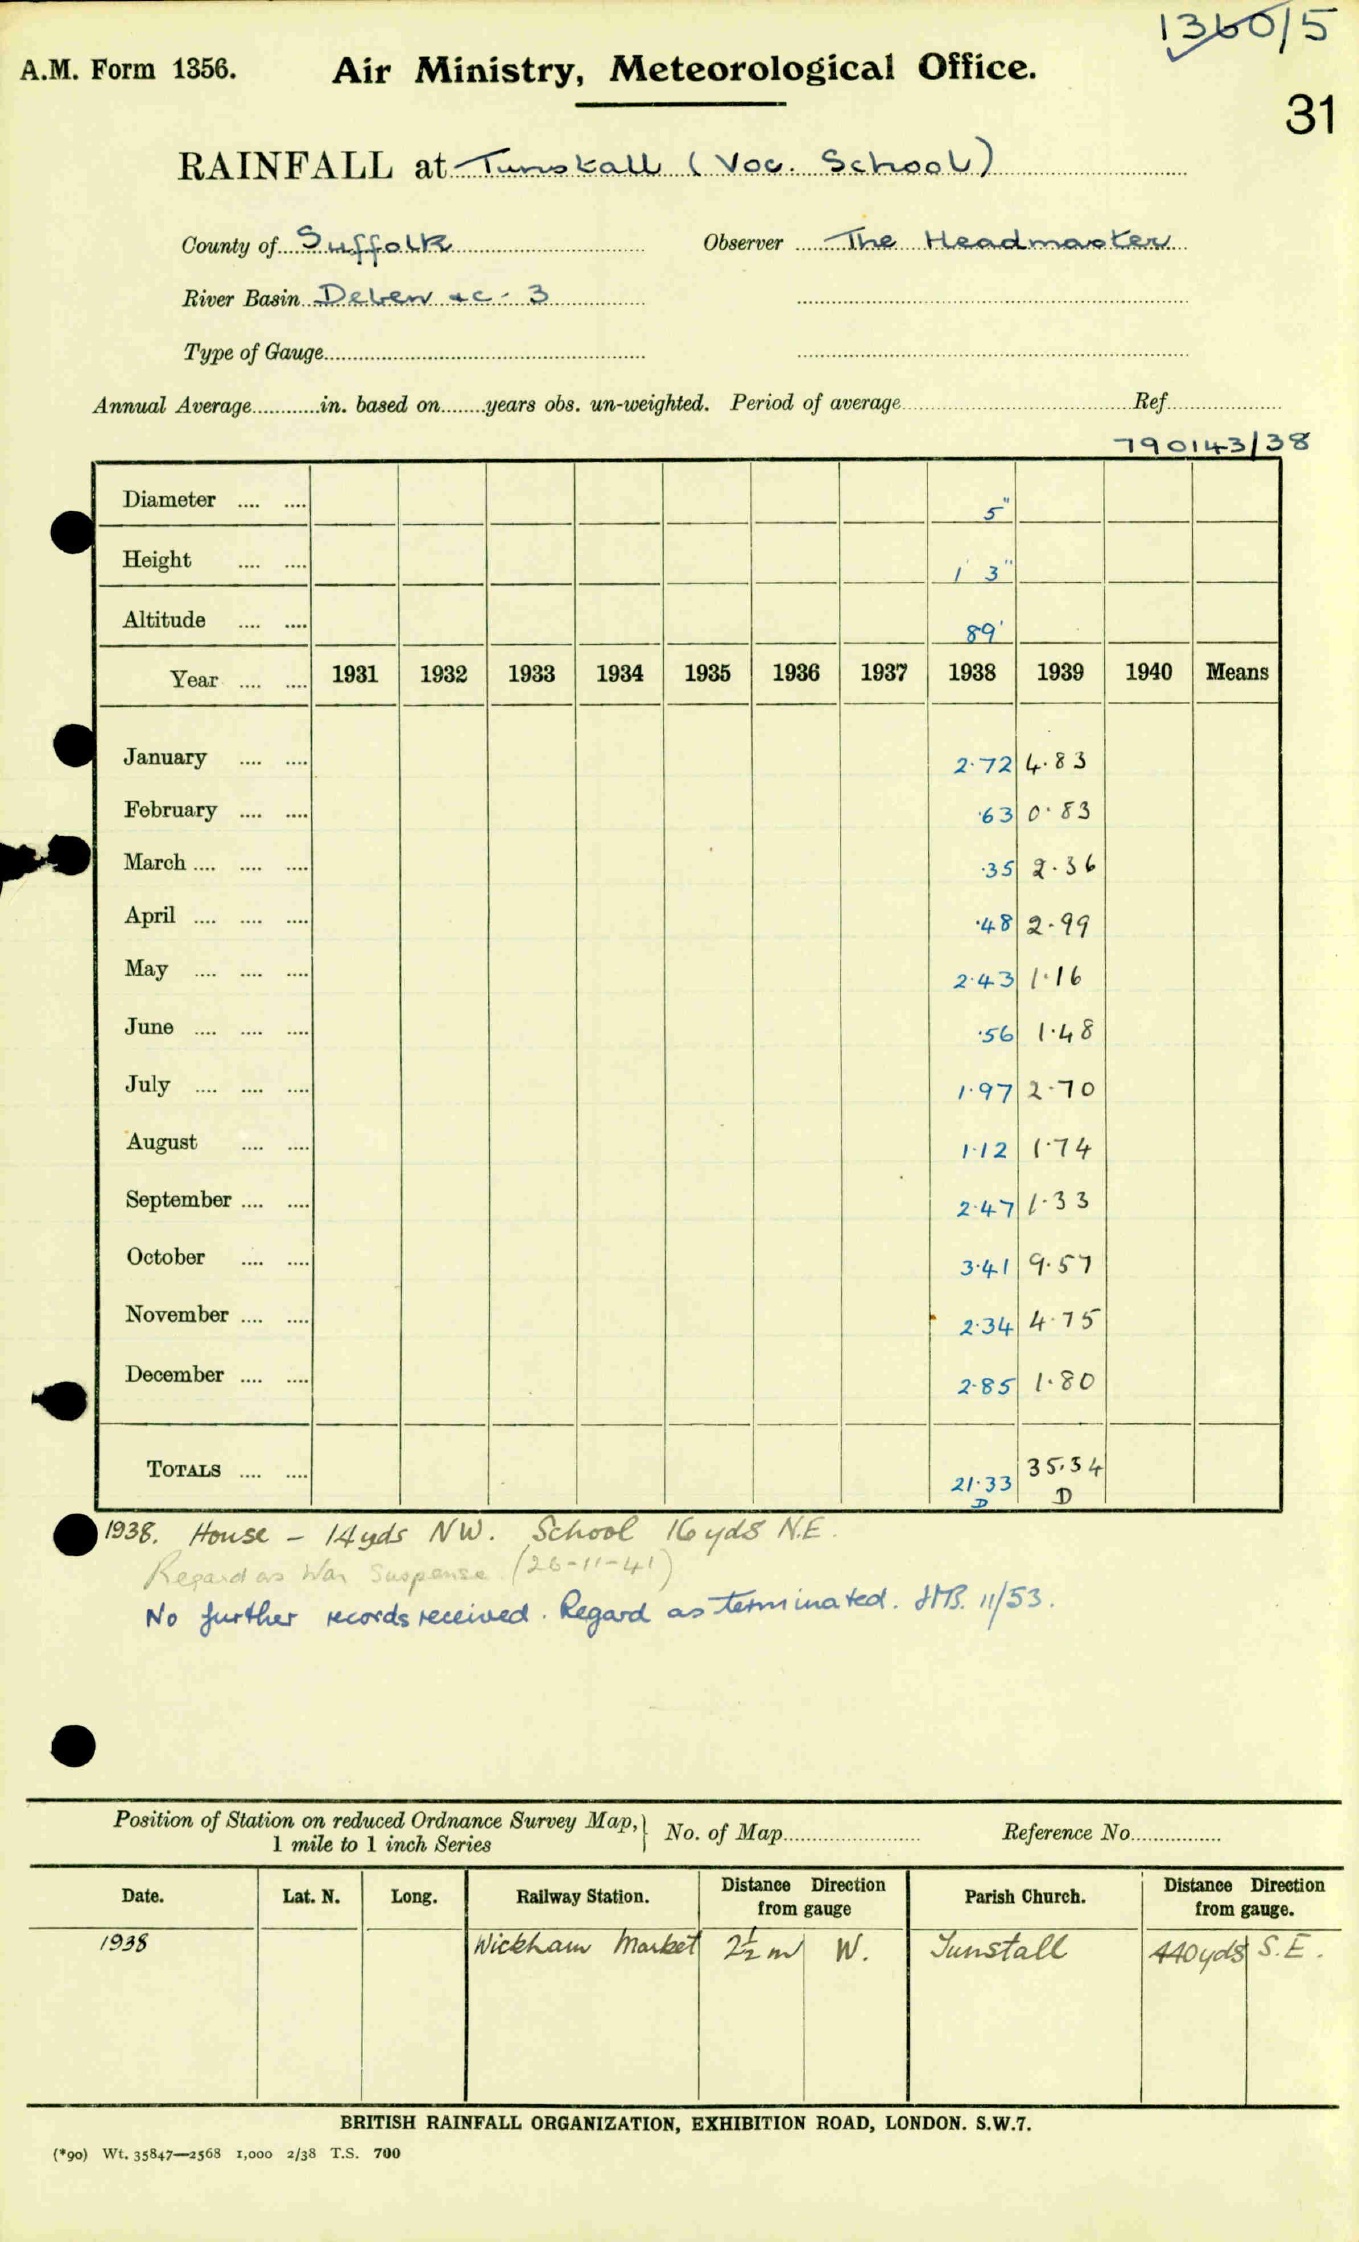 1360/5
A.M. Form 1356. Air Ministry, Meteorological Office.
31
RAINFALL at Tunstall (Voc. School)
County of Suffolk Observer The Headmaster
River Basin Deben &c. 3
Type of Gauge
Annual Average in. based on years obs. un-weighted. Period of average Ref.
790143/38
Diameter .... .... 5"
Height .... .... 1' 3"
Altitude .... .... 89'
Year .... .... 1931 1932 1933 1934 1935 1936 1937 1938 1939 1940 Means
January .... .... 2.72 4.83
February .... .... .63 0.83
March .... .... .... .35 2.36
April .... .... .... .48 2.99
May .... .... .... 2.43 1.16
June .... .... .... .56 1.48
July .... .... .... 1.97 2.70
August .... .... 1.12 1.74
September .... .... 2.47 1.33
October .... .... 3.41 9.57
November .... .... 2.34 4.75
December .... .... 2.85 1.80
TOTALS .... .... 21.33 35.54
D D
1938. House - 14yds NW. School 16yds N.E.
Regard as War Suspense. (26-11-41)
No further records received. Regard as terminated. 11/53.
Position of Station on reduced Ordnance Survey Map, } No. of Map Reference No.
1 mile to 1 inch Series
Date. Lat. N. Long. Railway Station. Distance Direction from gauge Parish Church. Distance Direction from gauge.
1938 Wickham Market 2½ m W. Tunstall 440yds S.E.
BRITISH RAINFALL ORGANIZATION, EXHIBITION ROAD, LONDON. S.W.7.
(*90) Wt. 35847—2568 1,000 2/38 T.S. 700